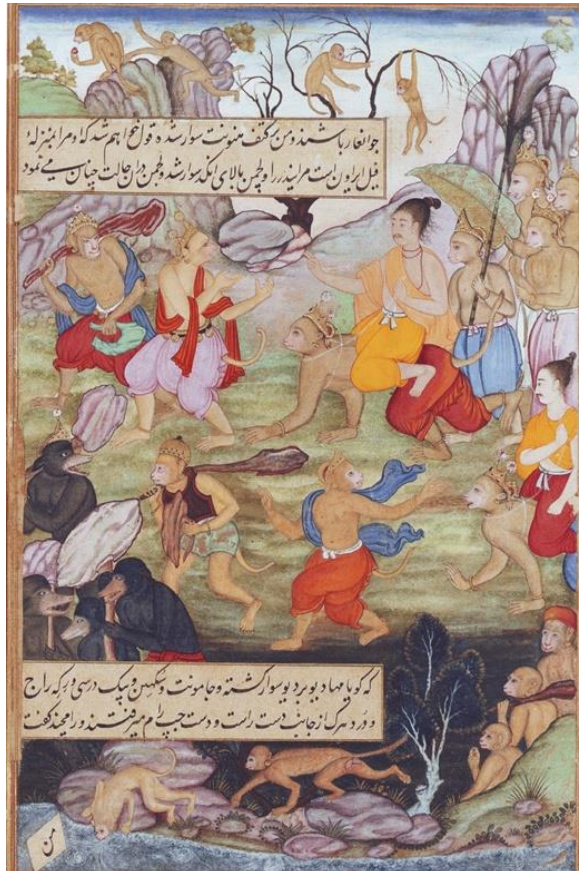 جوانغار باشند و من بر کتف هنونت سوار شده قول خواهم شد که او مرا بمنزلهٔ
فیل ایراون است مر ایندر را و لچمن بالای انکد سوار شد و لچمن دران حالت چنان می نمود
که گویا مهادیو بر دیو سوار گشته و جامونت و سکهین و بیک درسی
از جانب دست راست و دست چپ رام میرفتند و رامچند گفت
من